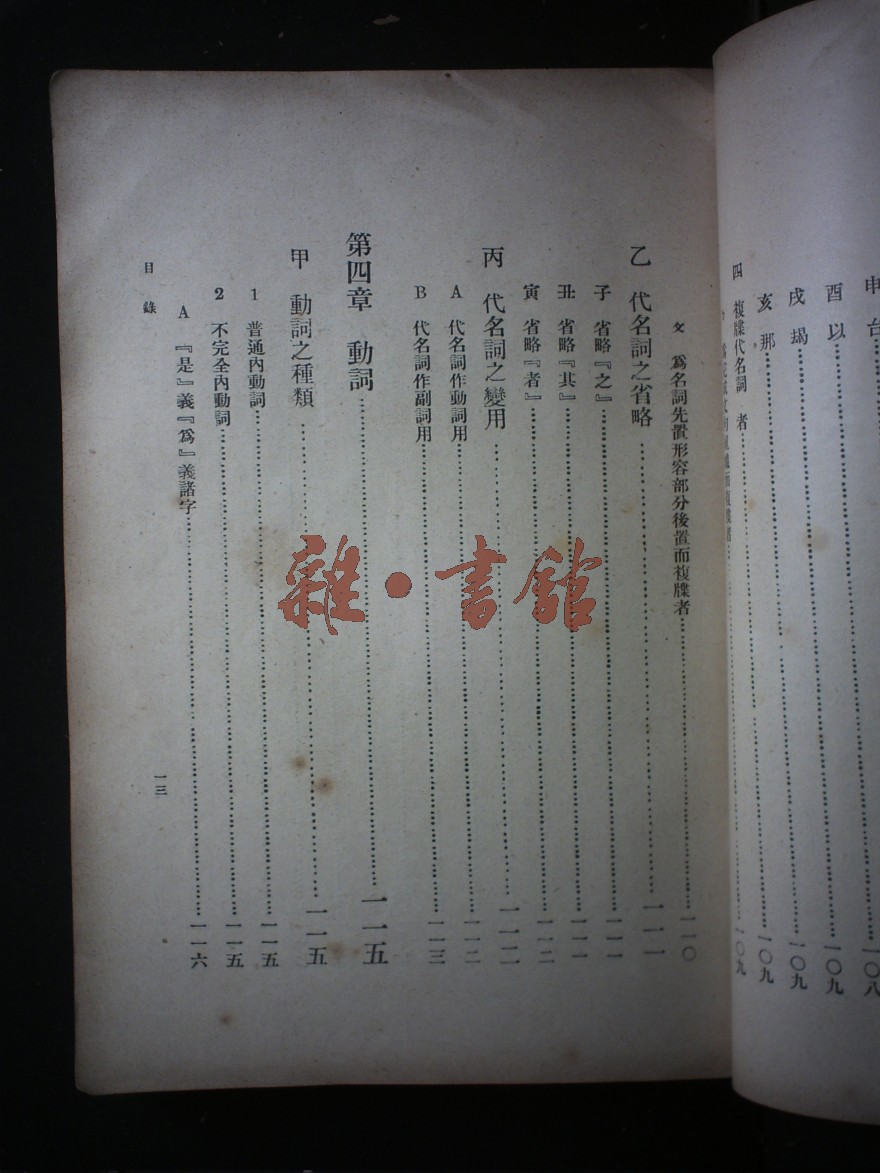 申 台……一〇八
酉 以……一〇九
戌 曷……一〇九
亥 那……一〇九
四 複牒代名詞 者……一〇九
爲名詞先置形容部分後置而複牒者……一一〇
乙 代名詞之省略……一一一
子 省略『之』……一一一
丑 省略『其』……一一一
寅 省略『者』……一一二
丙 代名詞之變用……一一二
A 代名詞作動詞用……一一二
B 代名詞作副詞用……一一三
第四章 動詞……一一五
甲 動詞之種類……一一五
1 普通內動詞……一一五
2 不完全內動詞……一一五
A 『是』義『爲』義諸字……一一六
目錄
一三
雜·書館